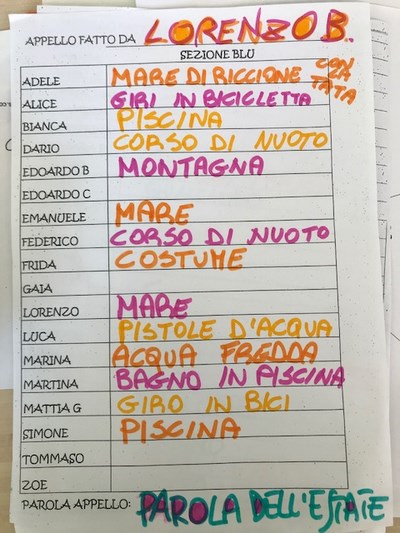 APPELLO FATTO DA LORENZO B.
SEZIONE BLU
ADELE MARE DI RICCIONE CON TATA
ALICE GIRI IN BICICLETTA
BIANCA PISCINA
DARIO CORSO DI NUOTO
EDOARDO B MONTAGNA
EDOARDO C
EMANUELE MARE
FEDERICO CORSO DI NUOTO
FRIDA COSTUME
GAIA
LORENZO MARE
LUCA PISTOLE D'ACQUA
MARINA ACQUA FREDDA
MARTINA BAGNO IN PISCINA
MATTIA G GIRO IN BICI
SIMONE PISCINA
TOMMASO
ZOE
PAROLA APPELLO: PAROLA DELL'ESTATE